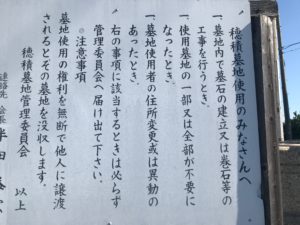 穂積墓地使用のみなさんへ
一、墓地内で墓石の建立又は巻石等の
工事を行うとき。
一、使用墓地の一部又は全部が不要に
なったとき。
一、墓地使用者の住所変更或は異動の
あったとき。
右の事項に該当するときは必らず
管理委員会へ届け出て下さい。
◎注意事項
墓地使用の権利を無断で他人に譲渡
されるとその墓地を没収します。
以上
穂積墓地管理委員会
連絡先 会長 半田